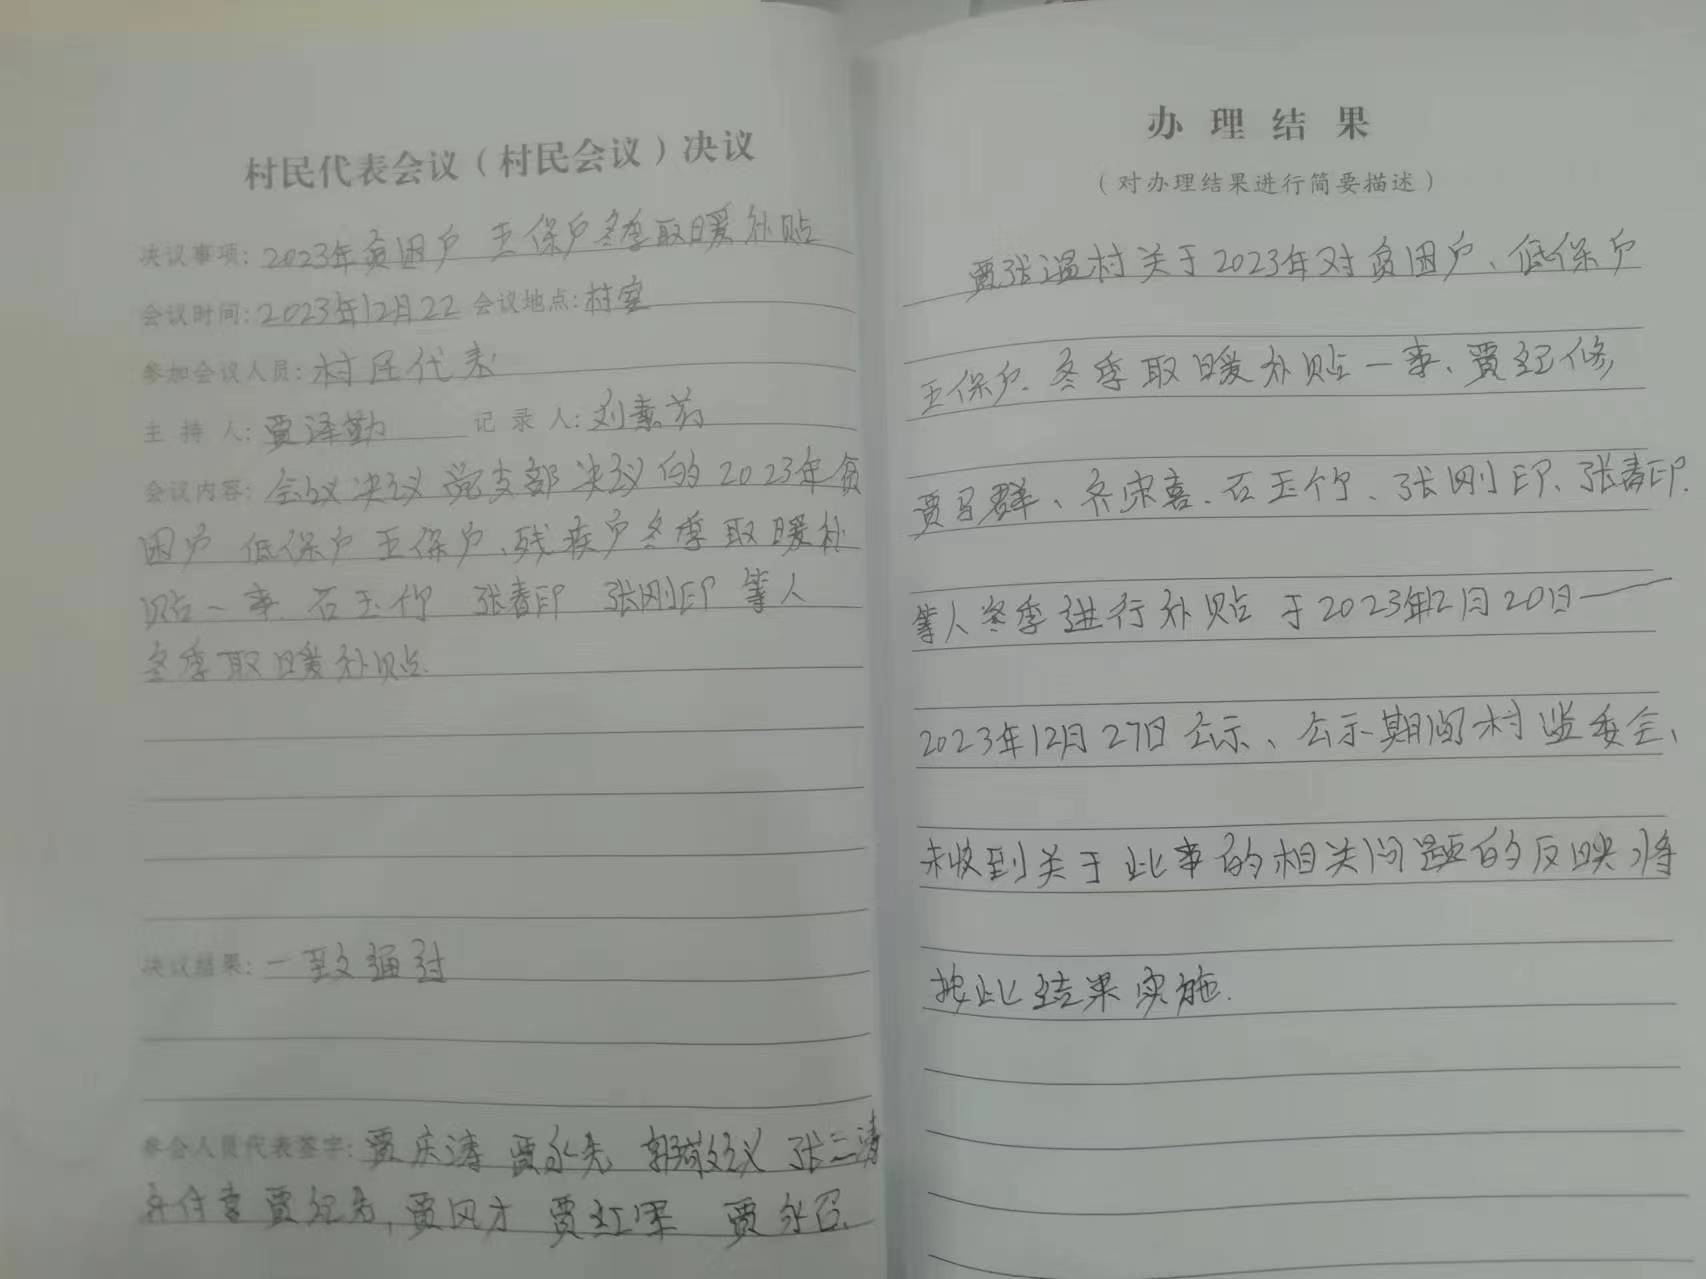 村民代表会议（村民会议）决议
决议事项：2023年贫困户 五保户冬季取暖补贴
会议时间：2023年12月22 会议地点：村室
参加会议人员：村民代表
主持人：贾泽勤 记录人：刘素芬
会议内容：会议决议党支部决议的2023年贫
困户 低保户 五保户、残疾户冬季取暖补
贴一事. 石玉竹 张春印 张刚印 等人
冬季取暖补贴.
决议结果：一致通过
参会人员代表签字：贾庆涛 贾永先 张三清
贾纪先，贾风才 贾红军 贾永召.
办理结果
（对办理结果进行简要描述）
贾张温村关于2023年对贫困户、低保户
五保户. 冬季取暖补贴一事、贾纪修，
贾马群、齐宋喜. 石玉竹、张刚印、张春印.
等人冬季进行补贴 于2023年12月20日—
2023年12月27日公示、公示期间村监委会、
未收到关于此事的相关问题的反映将
按此结果实施.